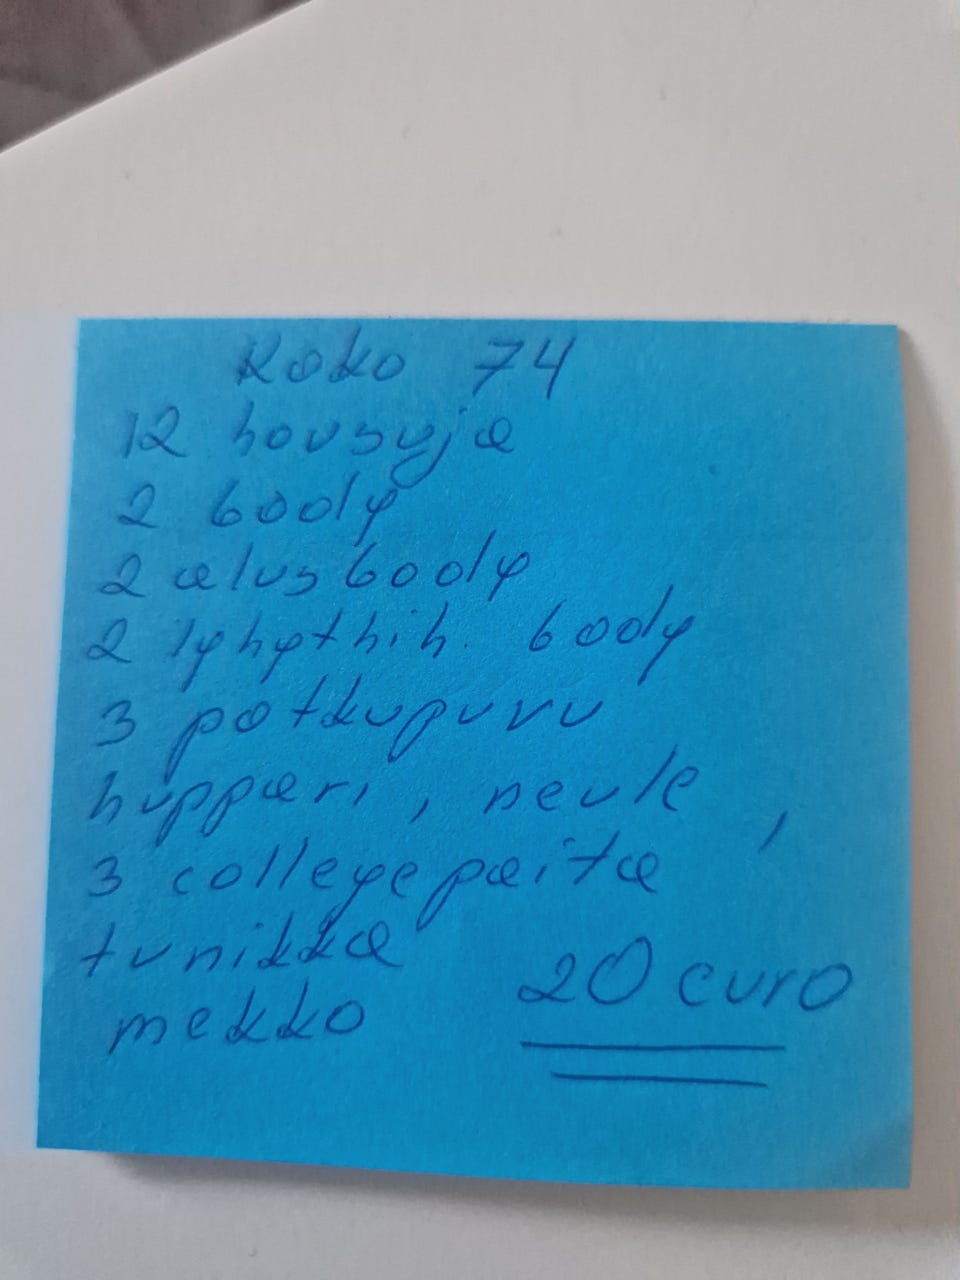 Koko 74
12 housuja
2 body
2 alusbody
2 lyhythih. body
3 potkupuvu
huppari, neule,
3 collegepaita
tunikka
mekko
20 euro